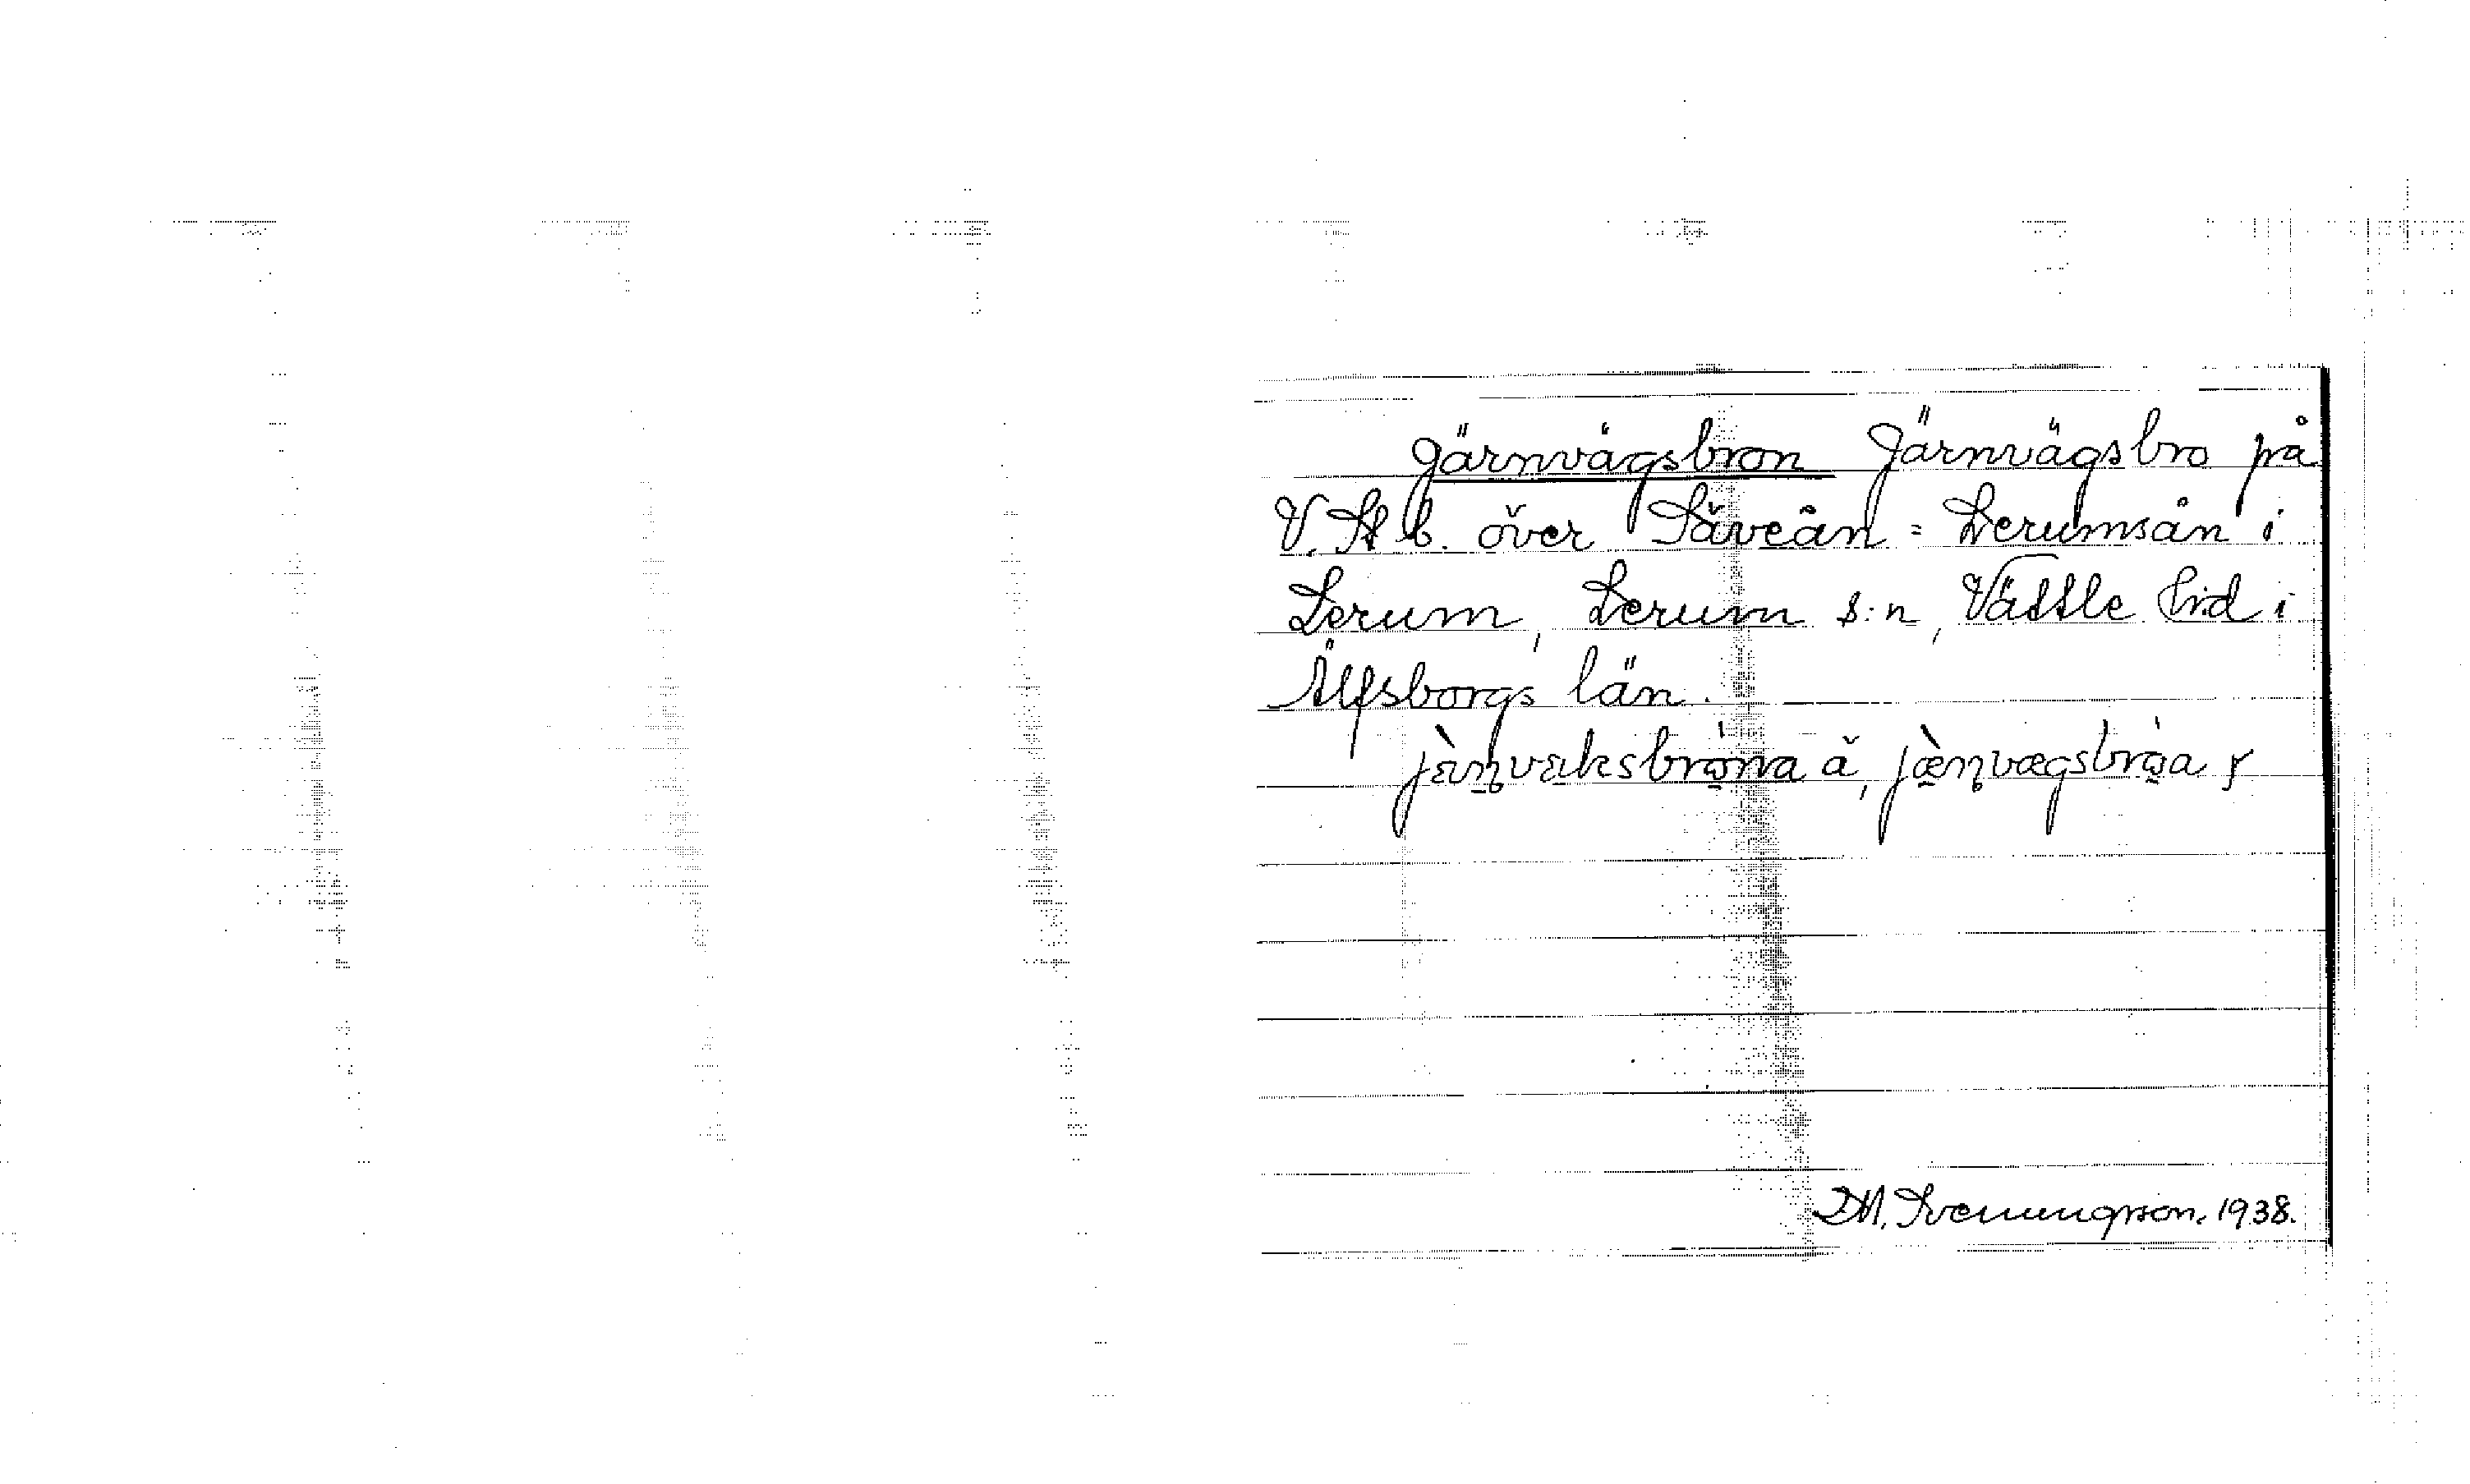 Järnvägsbron Järnvägsbro på
V. St b. över Säveån = Lerumsån i
Lerum, Lerum s:n, Vättle hd i
Älfsborgs län.
jàṇvaksbrona ä, jæ̀ṇvægsbroa y
DM. Svenungsson. 1938.